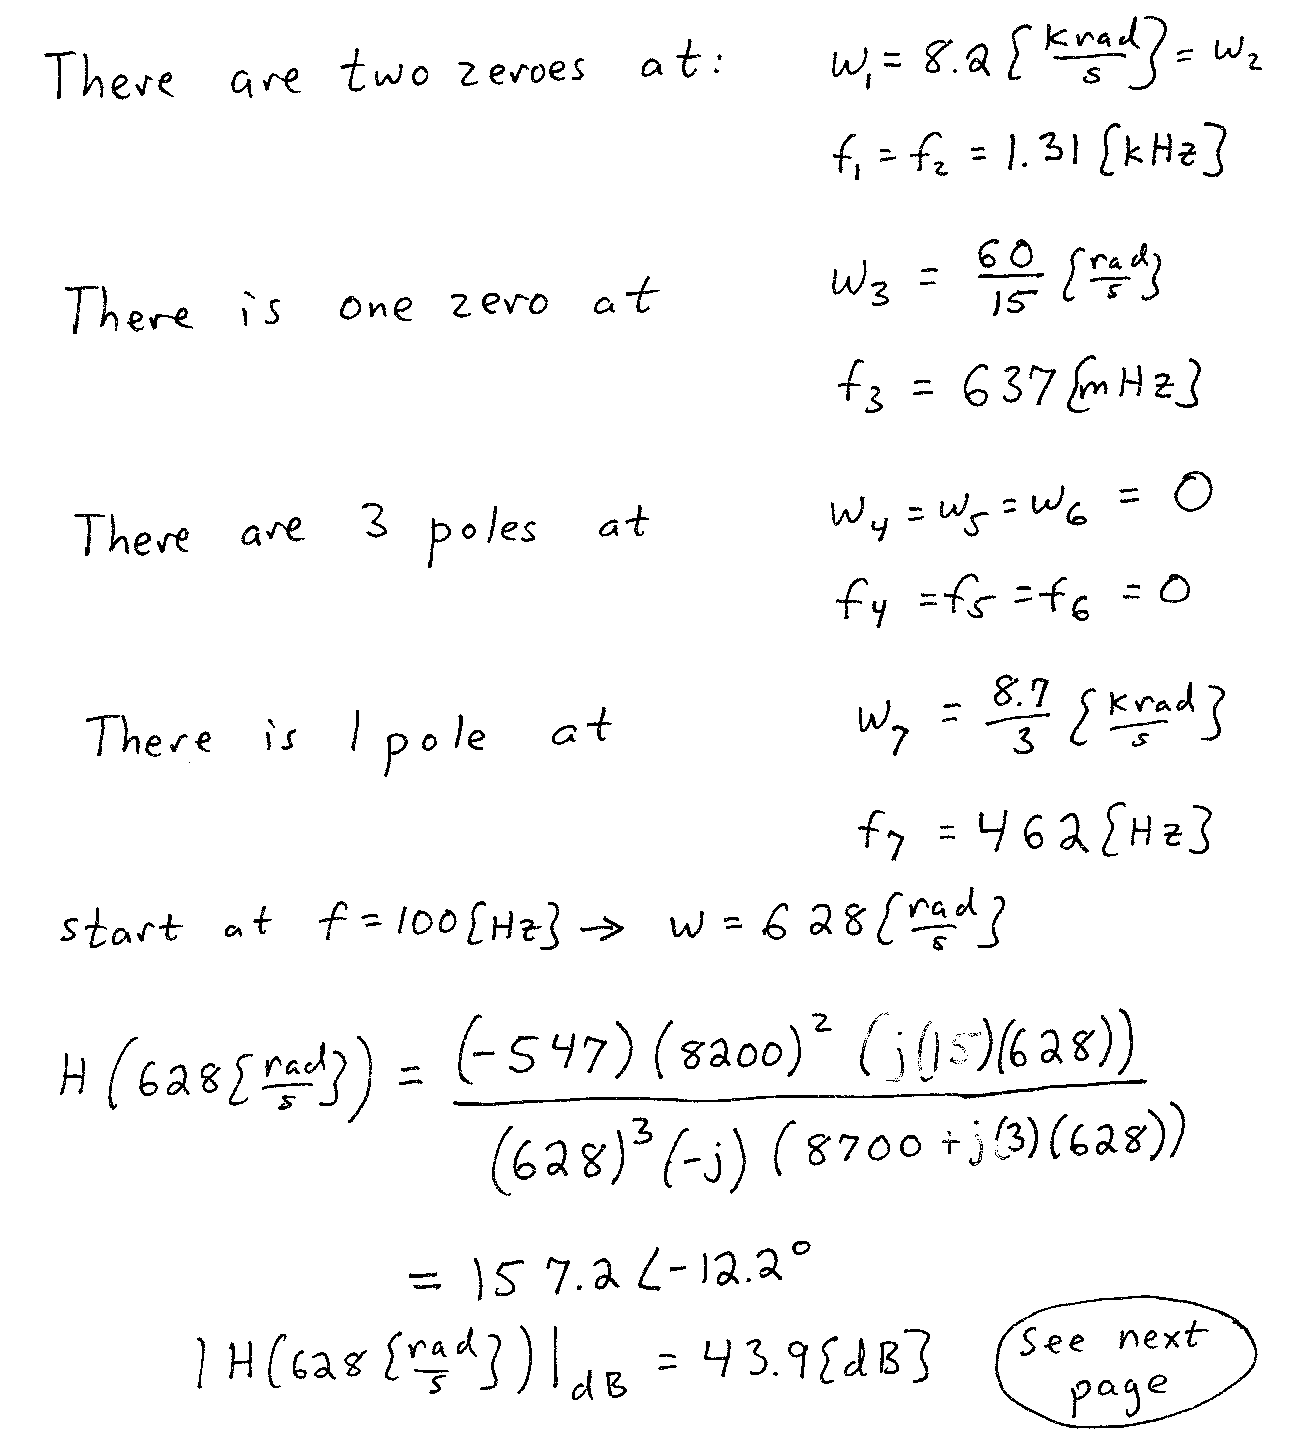 There are two zeroes at: w₁ = 8.2 {krad/s} = w₂
f₁ = f₂ = 1.31 {kHz}
There is one zero at w₃ = 60/15 {rad/s}
f₃ = 637 {mHz}
There are 3 poles at w₄ = w₅ = w₆ = 0
f₄ = f₅ = f₆ = 0
There is 1 pole at w₇ = 8.7/3 {krad/s}
f₇ = 462 {Hz}
start at f = 100 {Hz} → w = 628 {rad/s}
H(628{rad/s}) = (-547)(8200)² (j(15)(628)) / (628)³(-j)(8700 + j(3)(628))
= 157.2 ∠-12.2°
|H(628{rad/s})|dB = 43.9{dB}
See next
page